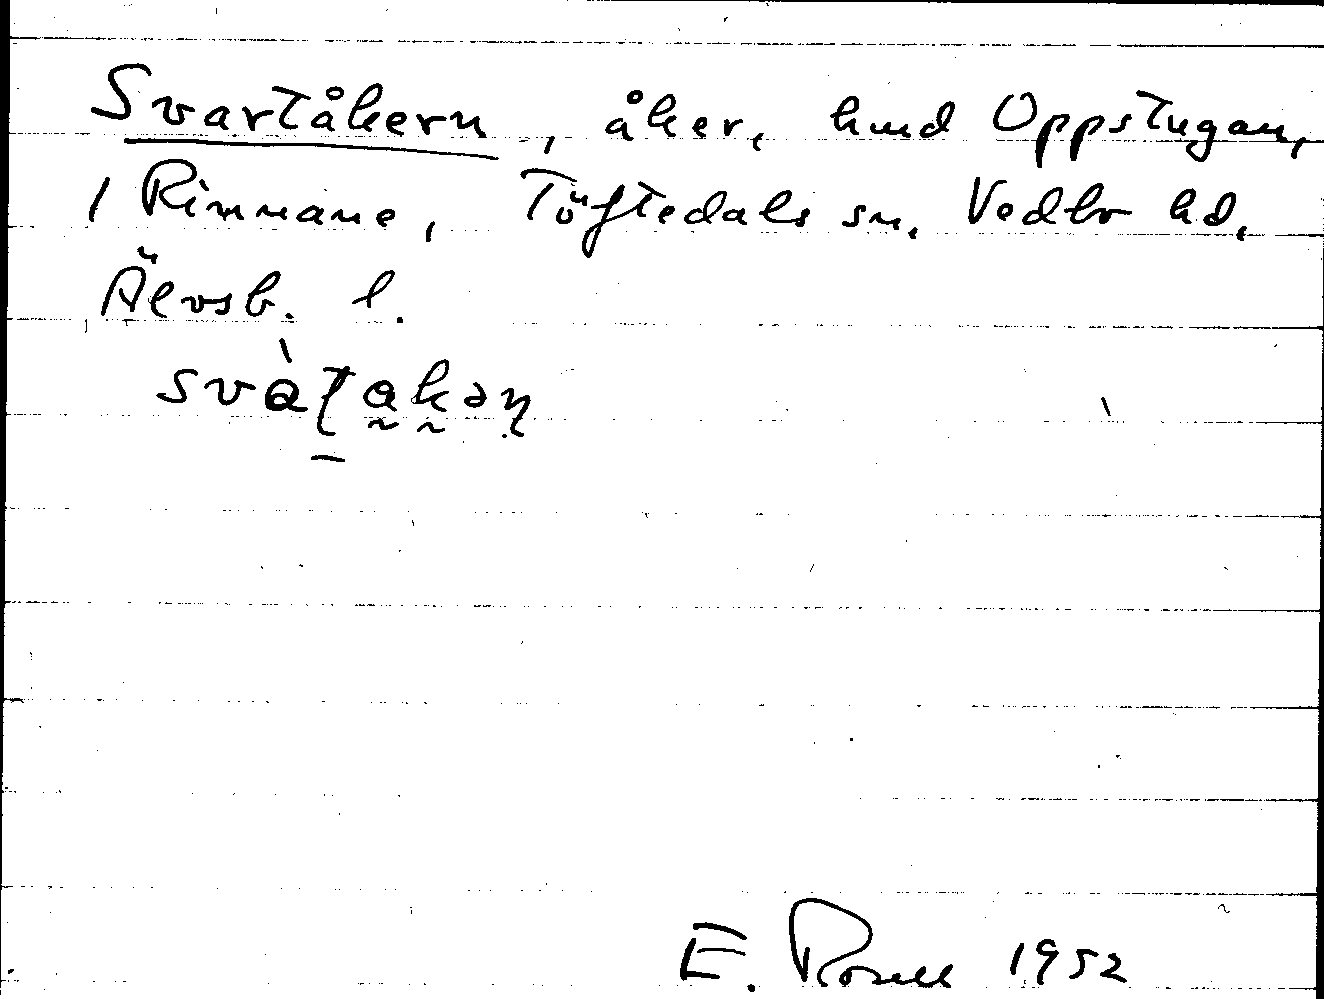 Svartåkern, åker, hmd Oppstugan,
1 Rinnane, Töftedals sn, Vedbo hd,
Älvsb. l.
E. Rosell 1952